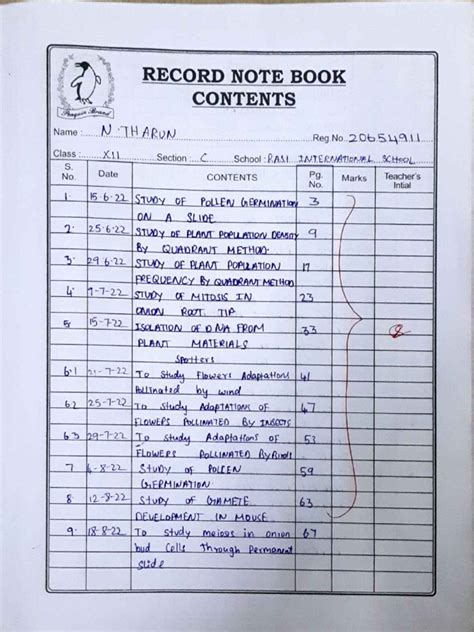 RECORD NOTE BOOK
CONTENTS
Penguin Brand
Name : N. THARUN Reg.No. 20654911
Class : XII Section : C School : RASI INTERNATIONAL SCHOOL
S. No. Date CONTENTS Pg. No. Marks Teacher's Intial
1. 15-6-22 STUDY OF POLLEN GERMINATION 3
ON A SLIDE
2. 25-6-22 STUDY OF PLANT POPULATION DENSITY 9
BY QUADRANT METHOD
3. 29-6-22 STUDY OF PLANT POPULATION 17
FREQUENCY BY QUADRANT METHOD
4. 9-7-22 STUDY OF MITOSIS IN 23
ONION ROOT TIP
5. 15-7-22 ISOLATION OF DNA FROM 33
PLANT MATERIALS
Spotters
6.1 21-7-22 To Study Flowers Adaptations 41
Pollinated by wind
6.2 25-7-22 To Study ADAPTATIONS OF 47
FLOWERS POLLINATED BY INSECTS
6.3 29-7-22 To Study Adaptations of 53
FLOWERS POLLINATED By Birds
7 6-8-22 STUDY OF POLLEN 59
GERMINATION
8. 12-8-22 STUDY OF GAMETE 63
DEVELOPMENT IN MOUSE
9. 18-8-22 To study meiosis in onion 67
bud cells through permanent
slide